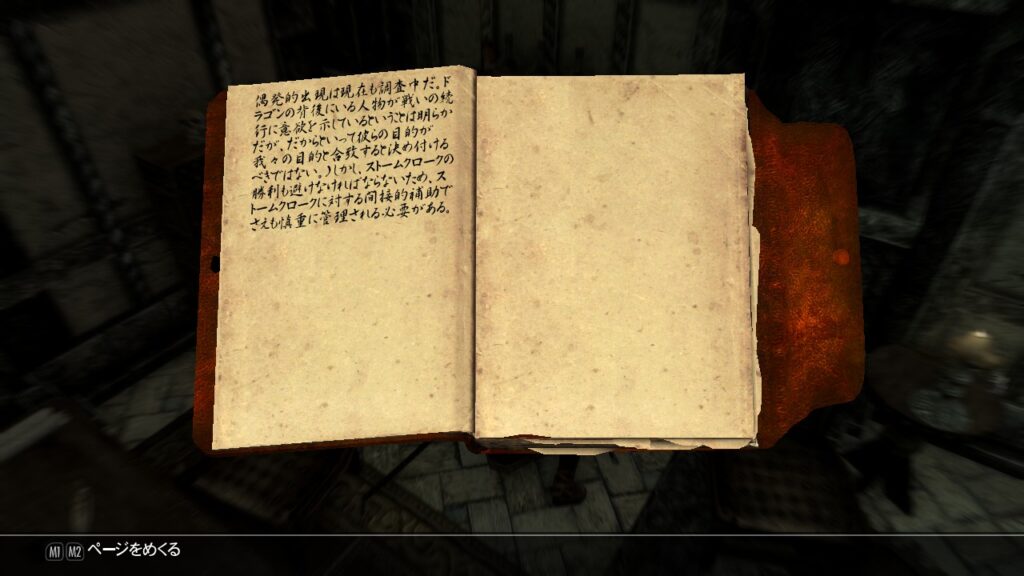 偶発的出現は現在も調査中だ。ド
ラゴンの背後にいる人物が戦いの続
行に意欲を示しているということは明らか
だが、だからといって彼らの目的が
我々の目的と合致すると決め付ける
べきではない。)しかし、ストームクロークの
勝利も避けなければならないため、ス
トームクロークに対する間接的補助で
さえも慎重に管理される必要がある。
M1 M2 ページをめくる